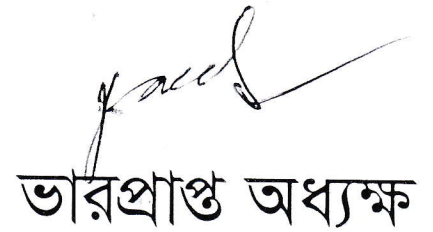 ভারপ্রাপ্ত অধ্যক্ষ